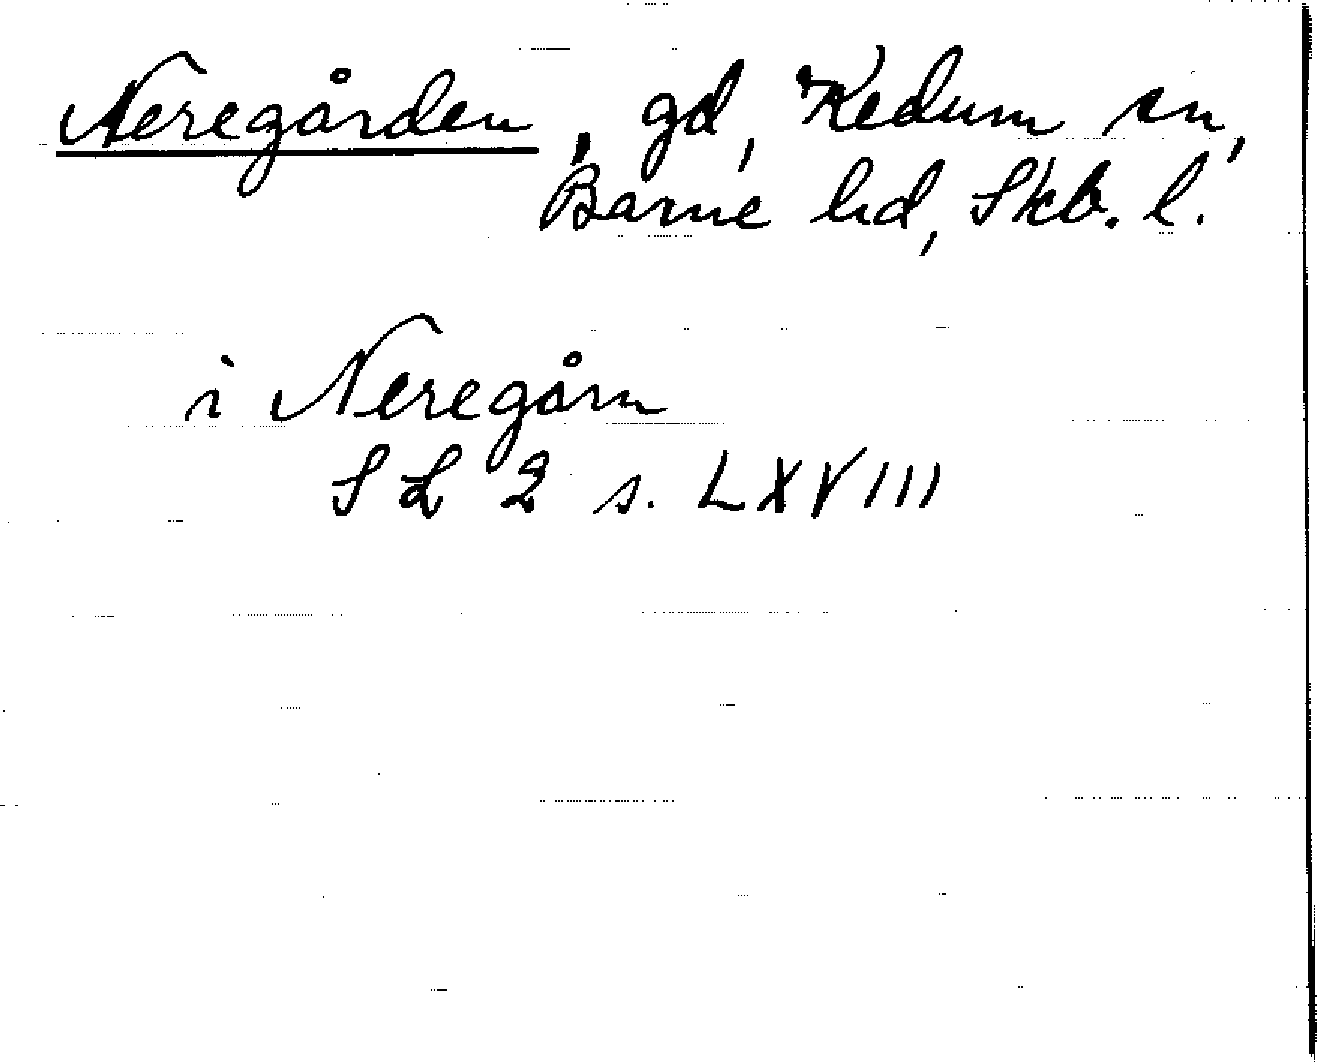 Neregården, gd, Kedum sn,
Barne hd, Skb. l.
i Neregårn
SL 2 s. LXVIII